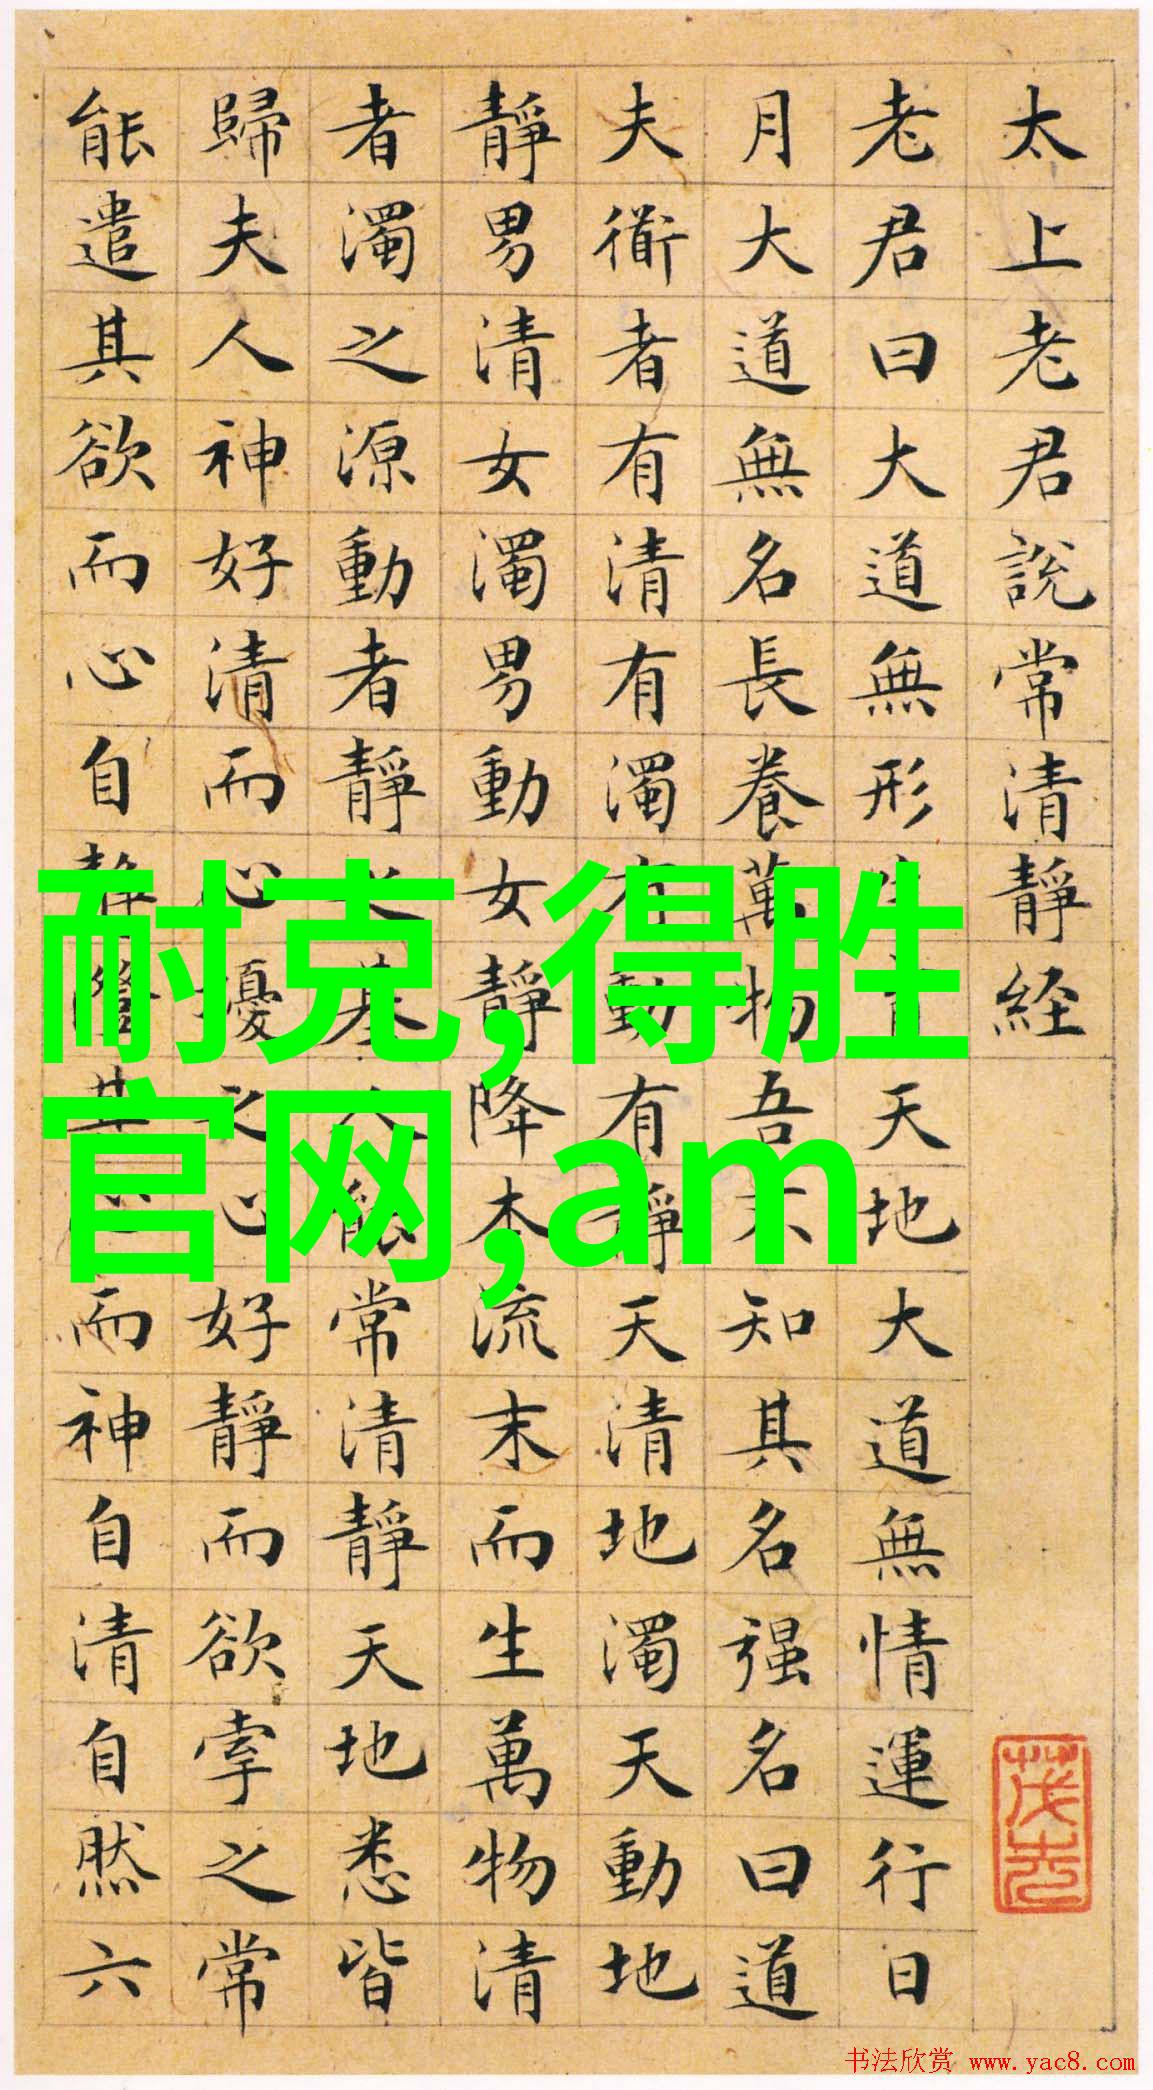 太上老君說常清靜経
老君曰大道無形生育天地大道無情運行日
月大道無名長養萬物吾不知其名强名曰道
夫衜者有清有濁有動有靜天清地濁天動地
靜男清女濁男動女靜降本流末而生萬物清
者濁之源動者靜之基人能常清靜天地悉皆
歸夫人神好清而心擾之心好靜而欲牽之常
能遣其欲而心自靜澄其心而神自清自然六
耐克,得胜
官网,am
书法欣赏 www.yac8.com